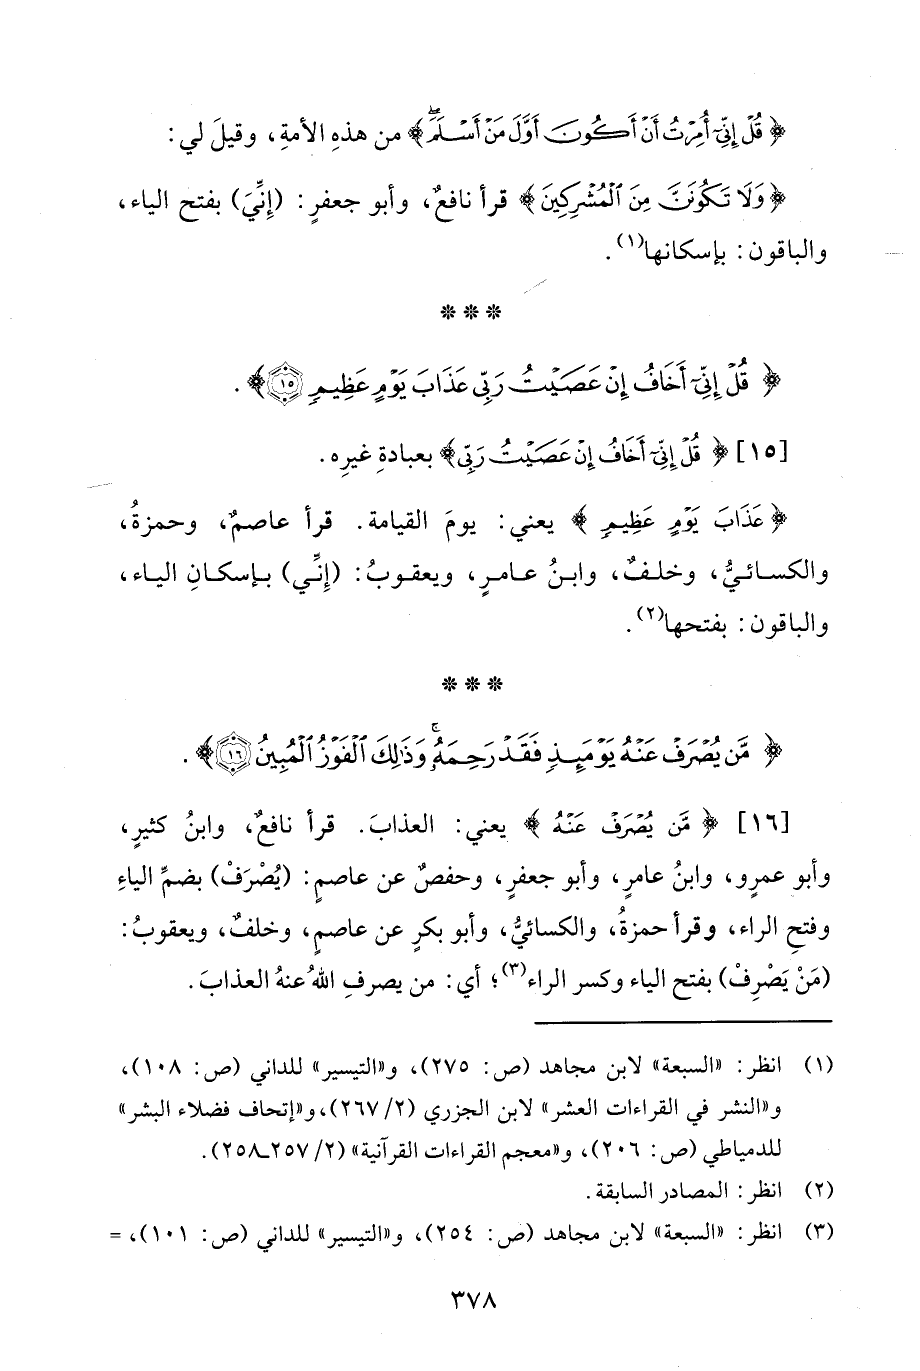 ﴿ قُلْ إِنِّيٓ أُمِرْتُ أَنْ أَكُونَ أَوَّلَ مَنْ أَسْلَمَۖ﴾ من هذهِ الأمةِ، وقيلَ لي:
﴿وَلَا تَكُونَنَّ مِنَ ٱلْمُشْرِكِينَ﴾ قرأ نافعٌ، وأبو جعفرٍ: (إِنِّيَ) بفتح الياء،
والباقون: بإسكانها(١).
* * *
﴿ قُلْ إِنِّيٓ أَخَافُ إِنْ عَصَيْتُ رَبِّي عَذَابَ يَوْمٍ عَظِيمٍ ١٥﴾.
[١٥] ﴿ قُلْ إِنِّيٓ أَخَافُ إِنْ عَصَيْتُ رَبِّي﴾ بعبادةِ غيرِه.
﴿عَذَابَ يَوْمٍ عَظِيمٍ ﴾ يعني: يومَ القيامة. قرأ عاصمٌ، وحمزةُ،
والكسائيُّ، وخلفٌ، وابنُ عامرٍ، ويعقوبُ: (إِنِّي) بإسكانِ الياء،
والباقون: بفتحها(٢).
* * *
﴿ مَّن يُصْرَفْ عَنْهُ يَوْمَئِذٍ فَقَدْ رَحِمَهُۥۚ وَذَٰلِكَ ٱلْفَوْزُ ٱلْمُبِينُ ١٦﴾.
[١٦] ﴿ مَّن يُصْرَفْ عَنْهُ ﴾ يعني: العذابَ. قرأ نافعٌ، وابنُ كثيرٍ،
وأبو عمرٍو، وابنُ عامرٍ، وأبو جعفرٍ، وحفصٌ عن عاصمٍ: (يُصْرَفْ) بضمِّ الياءِ
وفتحِ الراء، وقرأ حمزةُ، والكسائيُّ، وأبو بكرٍ عن عاصمٍ، وخلفٌ، ويعقوبُ:
(مَنْ يَصْرِفْ) بفتح الياء وكسر الراء(٣)؛ أي: من يصرفِ اللهُ عنهُ العذابَ.
(١) انظر: «السبعة» لابن مجاهد (ص: ٢٧٥)، و«التيسير» للداني (ص: ١٠٨)،
و«النشر في القراءات العشر» لابن الجزري (٢/ ٢٦٧)، و«إتحاف فضلاء البشر»
للدمياطي (ص: ٢٠٦)، و«معجم القراءات القرآنية» (٢/ ٢٥٧ـ٢٥٨).
(٢) انظر: المصادر السابقة.
(٣) انظر: «السبعة» لابن مجاهد (ص: ٢٥٤)، و«التيسير» للداني (ص: ١٠١)، =
٣٧٨